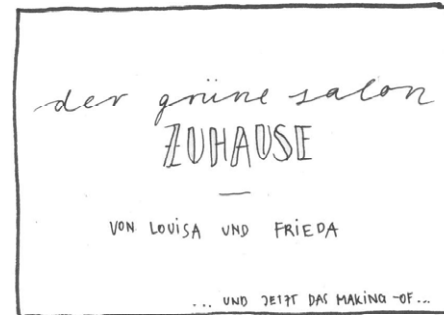 der grüne salon
ZUHAUSE
—
VON LOUISA UND FRIEDA
... UND JETZT DAS MAKING-OF...